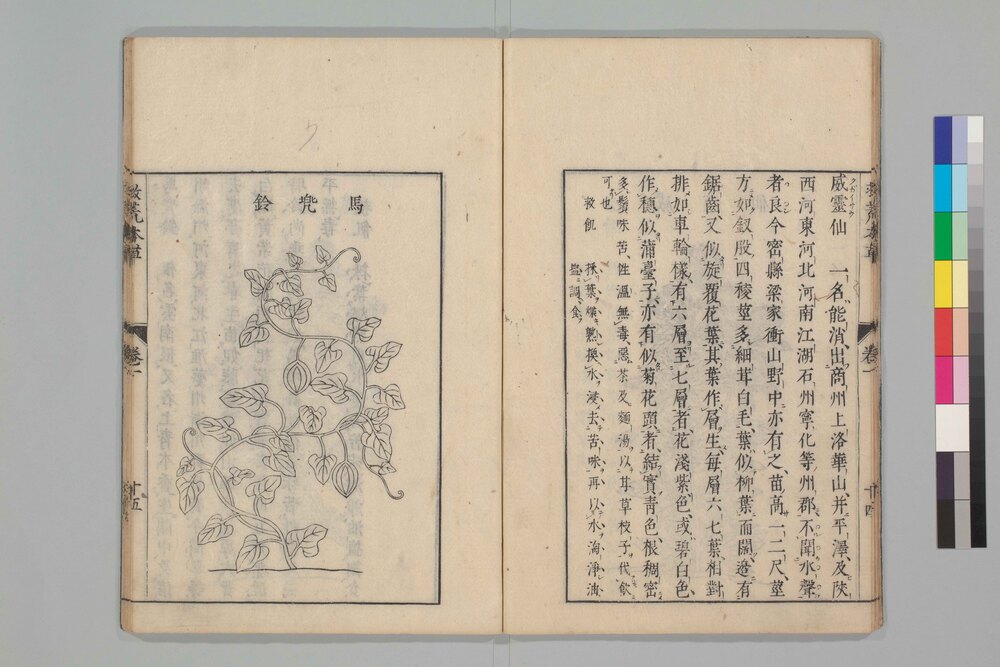 威靈仙 一名能消出商州上洛華山并平澤及陝
西河東河北河南江湖石州寧化等州郡不聞水聲
者良今密縣梁家衝山野中亦有之苗高一二尺莖
方如釵股四稜莖多細茸白毛葉似柳葉而闊邊有
鋸齒又似旋覆花葉其葉作層生每層六七葉相對
排如車輪樣有六層至七層者花淺紫色或碧白色
作穗似蒲臺子亦有似菊花頭者結實青色根稠密
多鬚味苦性溫無毒惡茶及麵湯以甘草梔子代飲
可也
救飢 採葉煠熟換水浸去苦味再以水淘淨油
鹽調食
救荒本草
卷一
十四
馬兜鈴
救荒本草
卷一
十五